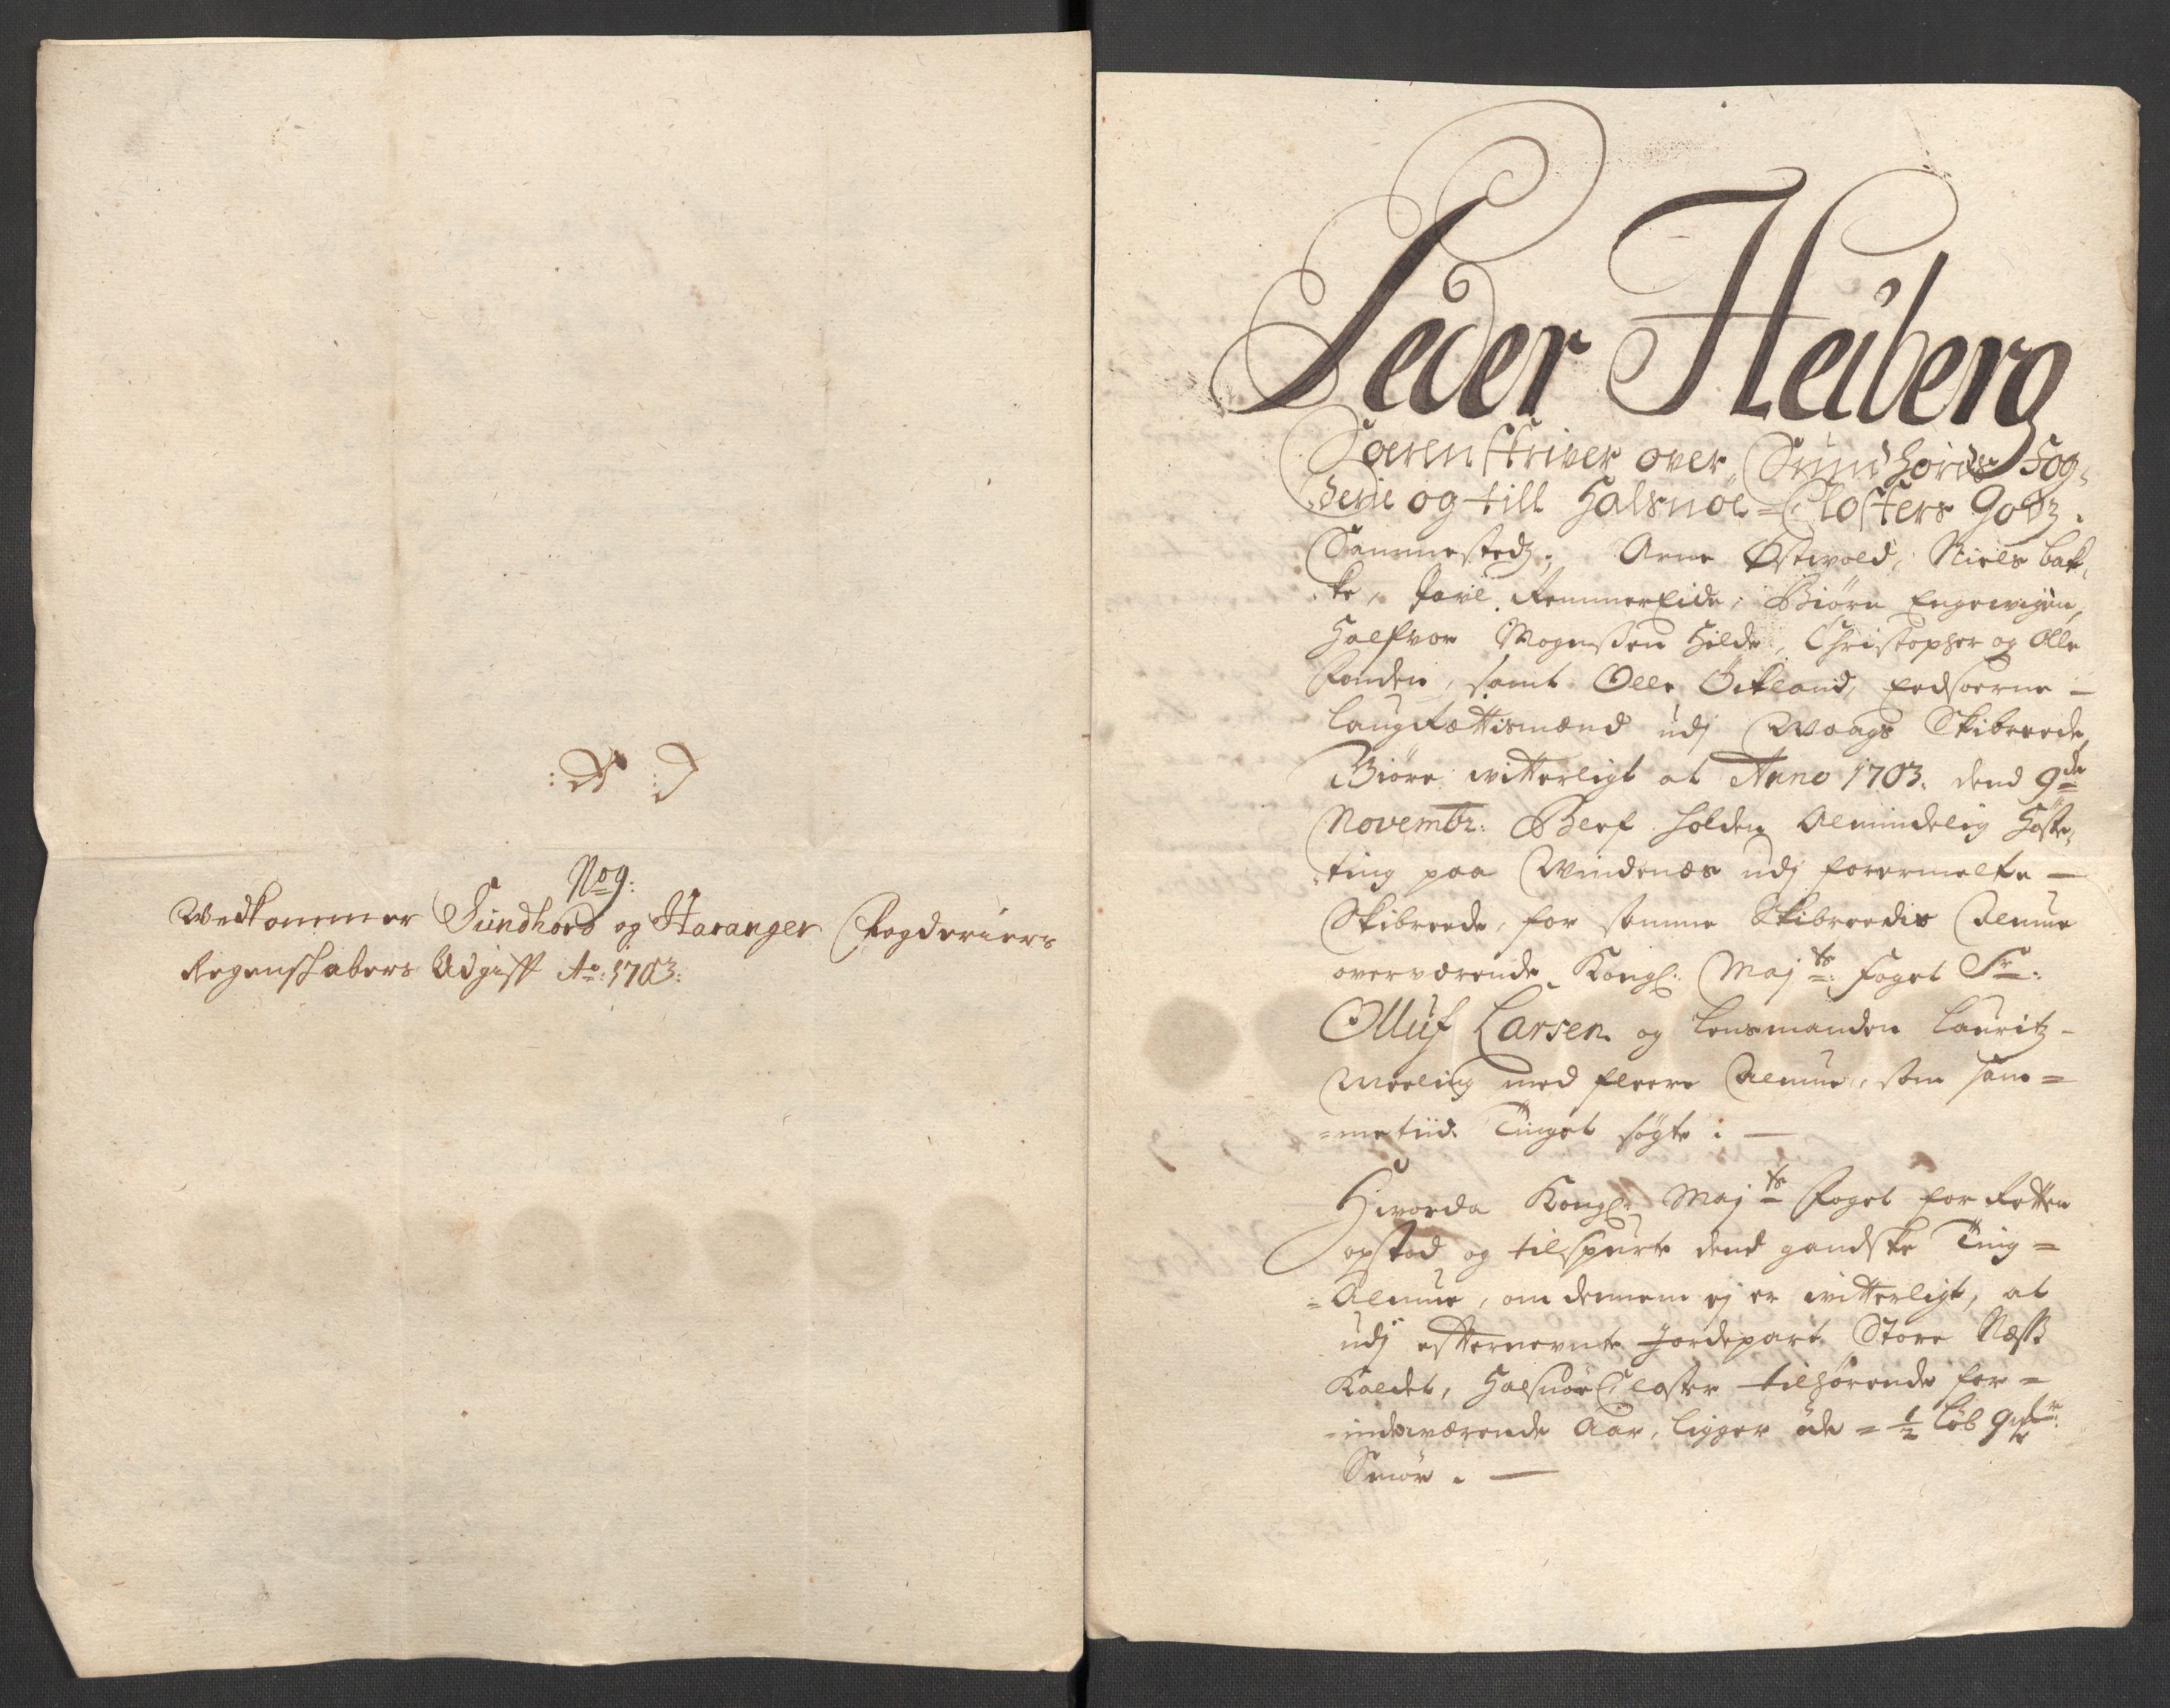 No 9:
Wedkommer Sundhord og Haranger Fogderiers
Regenschabers Udgifft Ao: 1703:
Peder Heiberg
Sorenskriver over Sundhords Fog,
derie og till Halsnøe Closters Godtz.
Sammestedtz, Arne Østevold, Niels bak,
ke, Povel Remmereide, Biørn Engevigen,
Halfvor Mognssen Hilde, Christopher og Olle
Fonden, samt Olle Økland, Eedsoerne -
Laugrættismænd udj Waags Skibrede,
Giøre witterligt at Anno 1703. dend 9de
Novembr: Blef holden Almindelig Høste,
ting paa Windenæs udj forermelte -
Skibreede, for samme Skibreedis Almue
overværende Kongl: Majts: Foget Sr:
Olluf Larsen og Lensmanden Lauritz -
Meeling med fleere Almue, som sam=
=metiid Tinget søgte. -
Hvorda Kongl: Majts Foget for Retten
opstod og tilspurte dend gandske Ting=
=Almue, om dennem ej er witterligt, at
udj efternevnte Jordepart Store Næss
Kaldet, Halsnøe Closter tilhørende for=
=indeværende Aar, ligger øde = ½ Løb 9 mkr
Smør. -